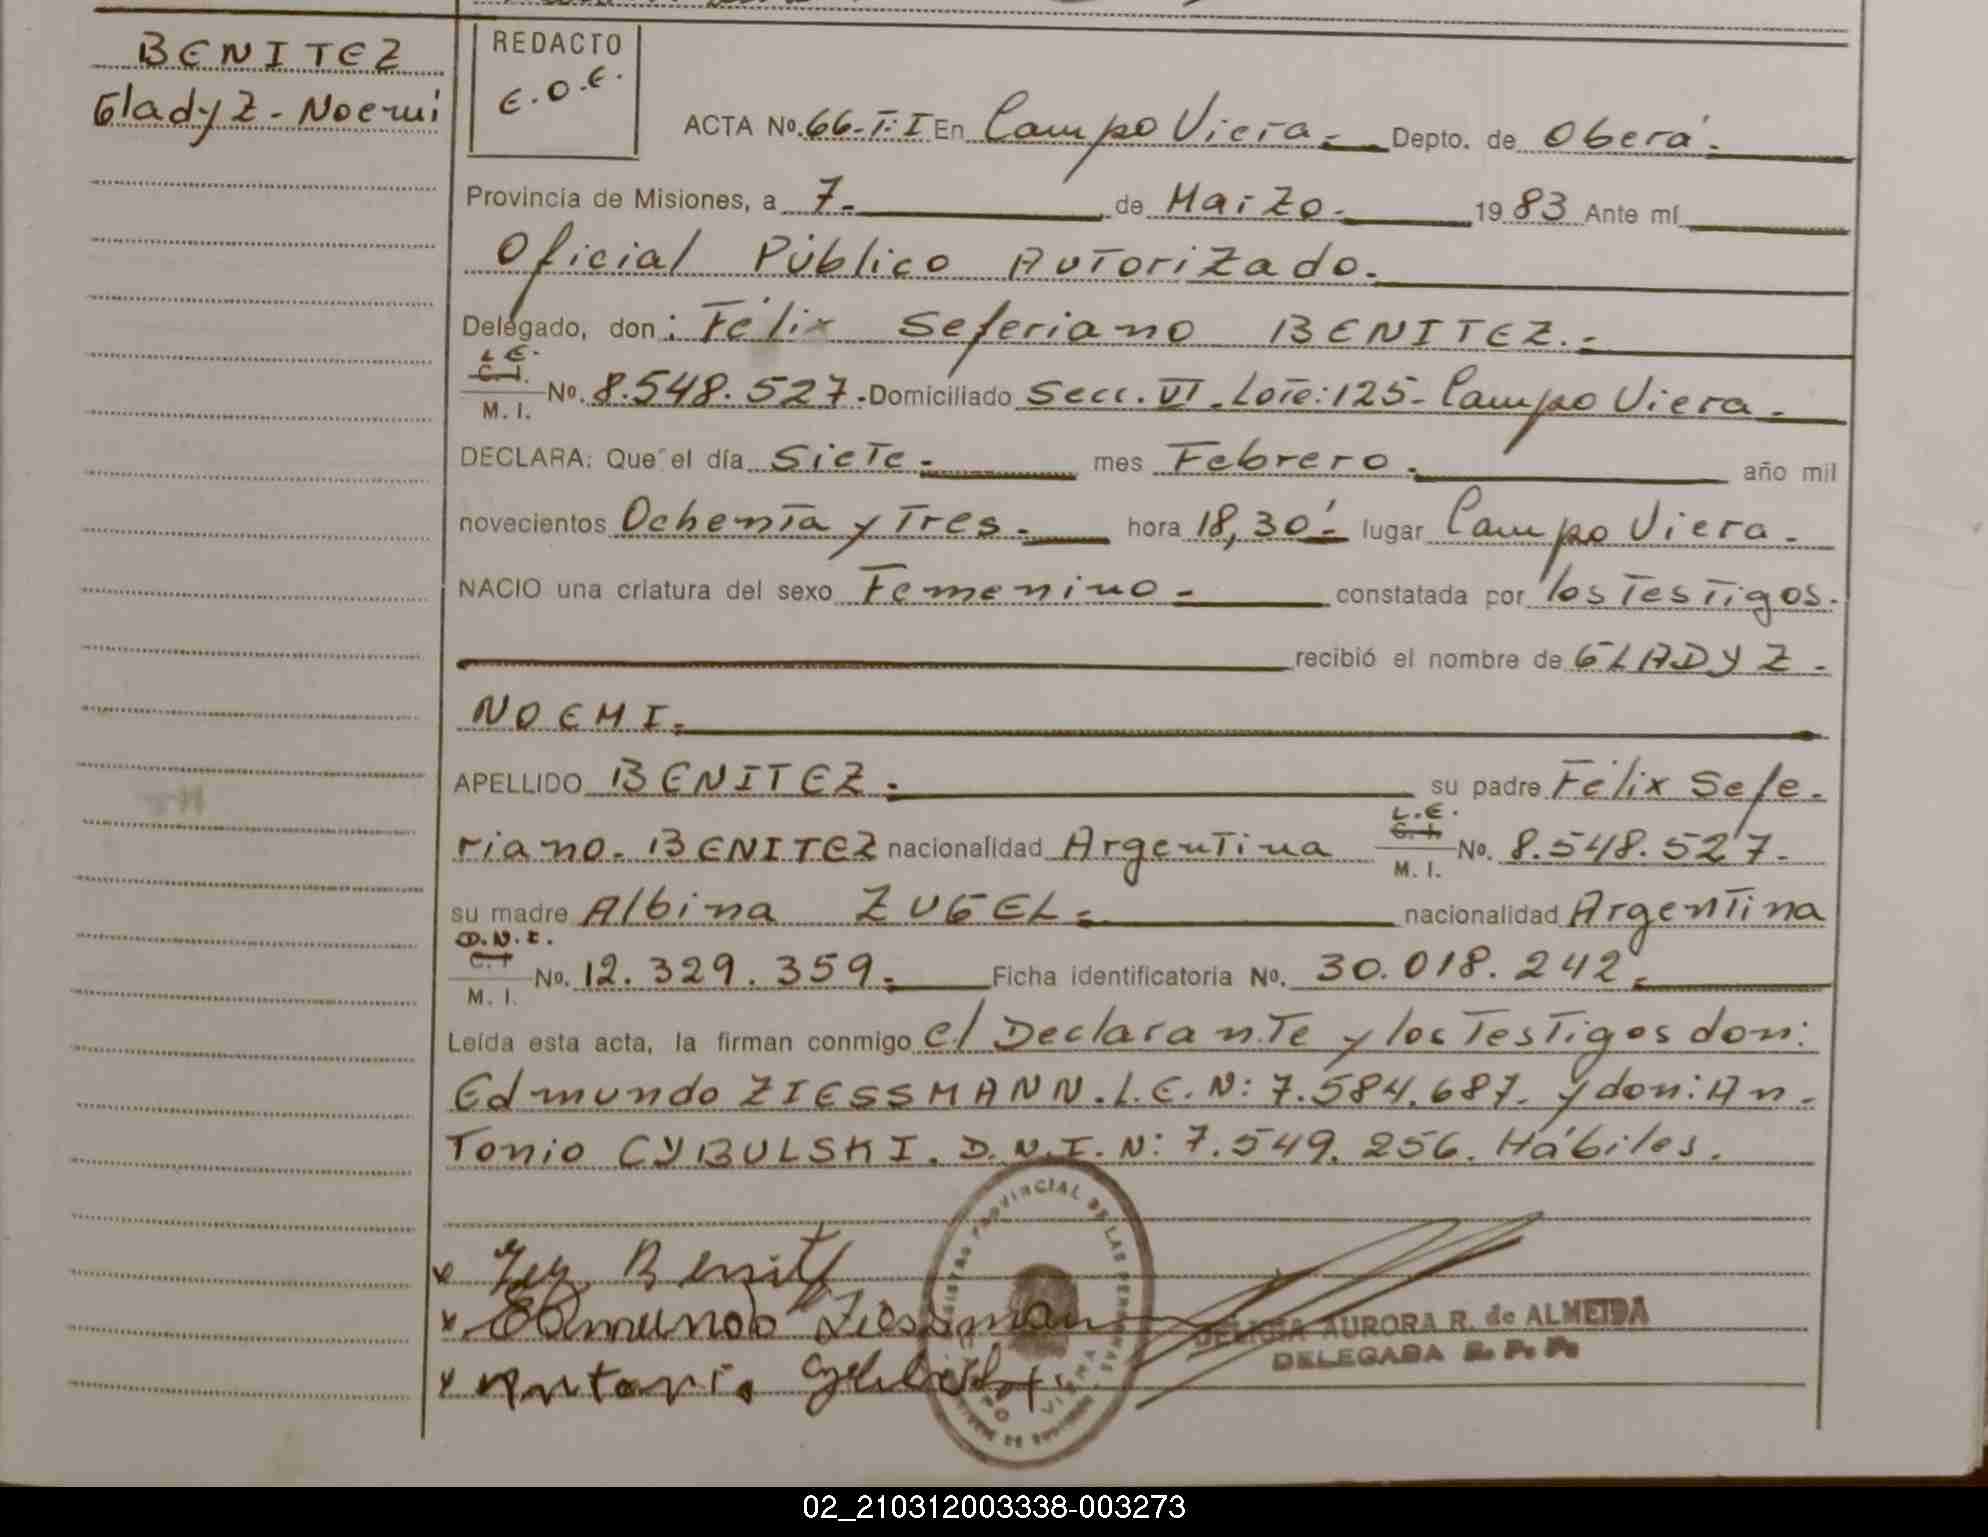 BENITEZ
Gladyz - Noemi
REDACTO
E.O.E.
ACTA No. 66-T:I En Campo Viera.- Depto. de Oberá.
Provincia de Misiones, a 7.- de Marzo.- 1983 Ante mí
Oficial Público Autorizado.
Delegado, don: Félix Seferiano BENITEZ.-
L.E.
C. I.
M. I.
No. 8.548.527.- Domiciliado Secc. VI. Lote: 125- Campo Viera.-
DECLARA: Que el día Siete.- mes Febrero. año mil
novecientos Ochenta y Tres.- hora 18,30'- lugar Campo Viera.-
NACIO una criatura del sexo Femenino.- constatada por los Testigos.
recibió el nombre de GLADYZ.-
NOEMI.
APELLIDO BENITEZ.- su padre Félix Sefe-
riano.- BENITEZ nacionalidad Argentina L.E. C. I. M. I. No. 8.548.527.-
su madre Albina ZUGEL.- nacionalidad Argentina
D.N.I.
C. I
M. I.
No. 12.329.359.- Ficha identificatoria No. 30.018.242.
Leída esta acta, la firman conmigo el Declarante y los Testigos don:
Edmundo ZIESSMANN. L.E. N: 7.584.687. y don: An-
Tonio CYBULSKI. D.N.I. N: 7.549.256. Hábiles.
x Benitez
x Edmundo Ziessman
x Antonio
REGISTRO PROVINCIAL DE LAS PERSONAS
VIERA
DELICIA AURORA R. de ALMEIDA
DELEGADA R. P. P.
02_210312003338-003273